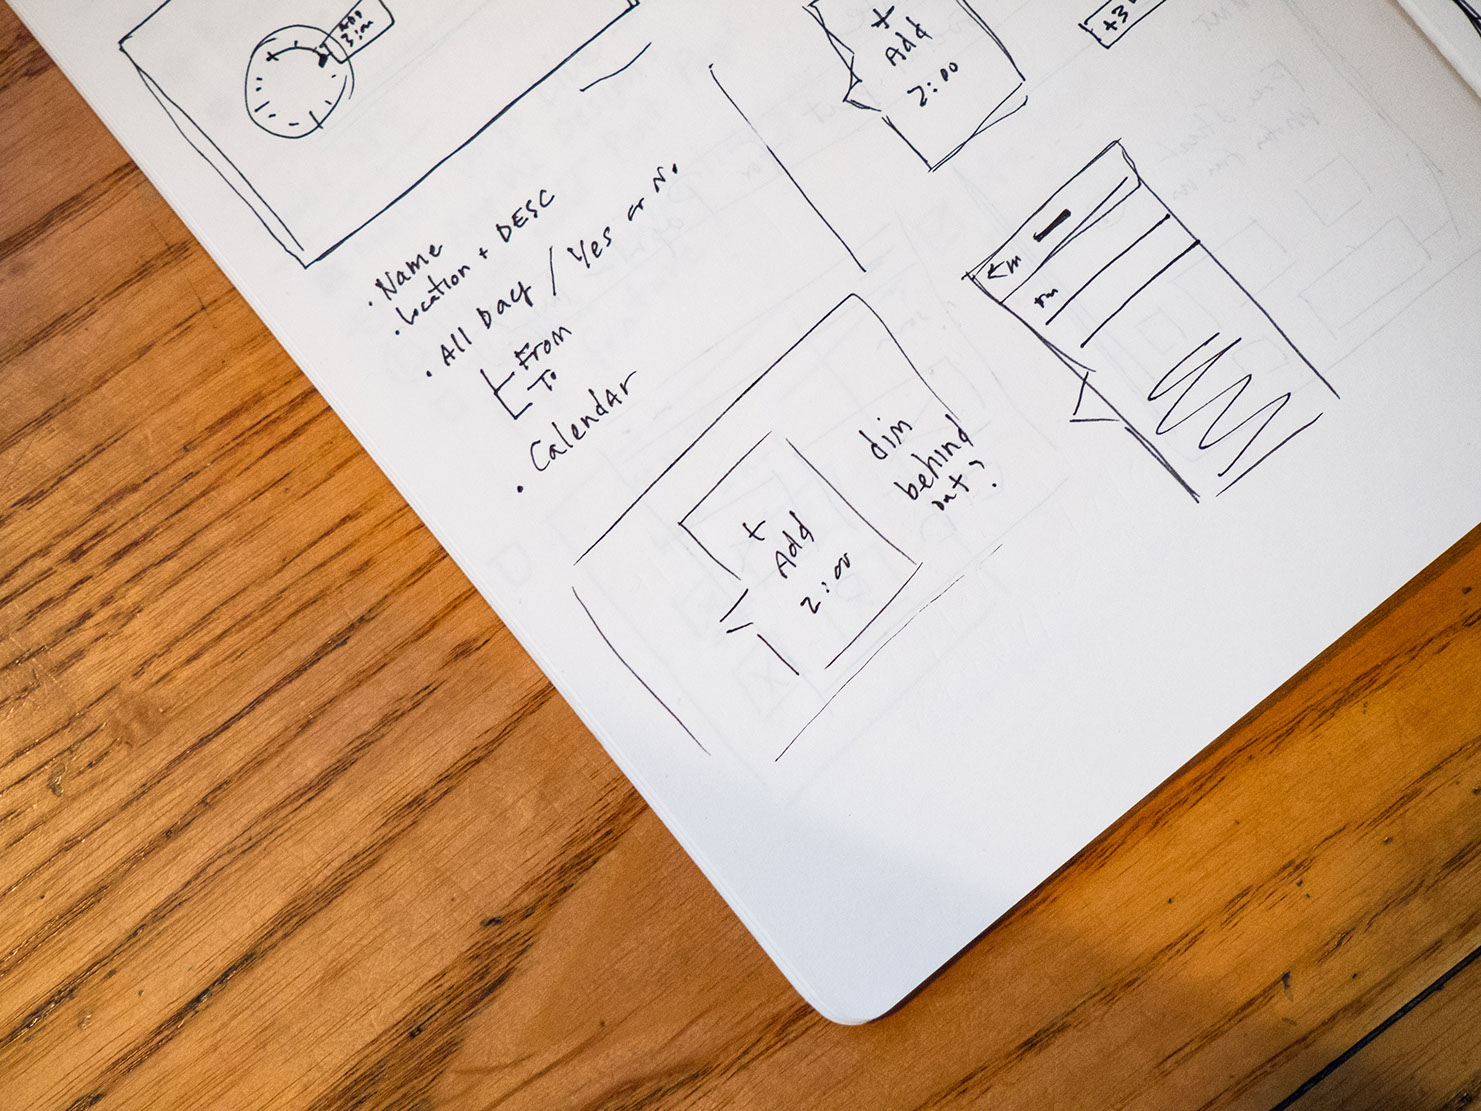 +
Add
2:00
+3
• Name
• Location + DESC
• All Day / Yes or No
From
To
• Calendar
+
Add
2:00
dim
behind
out?